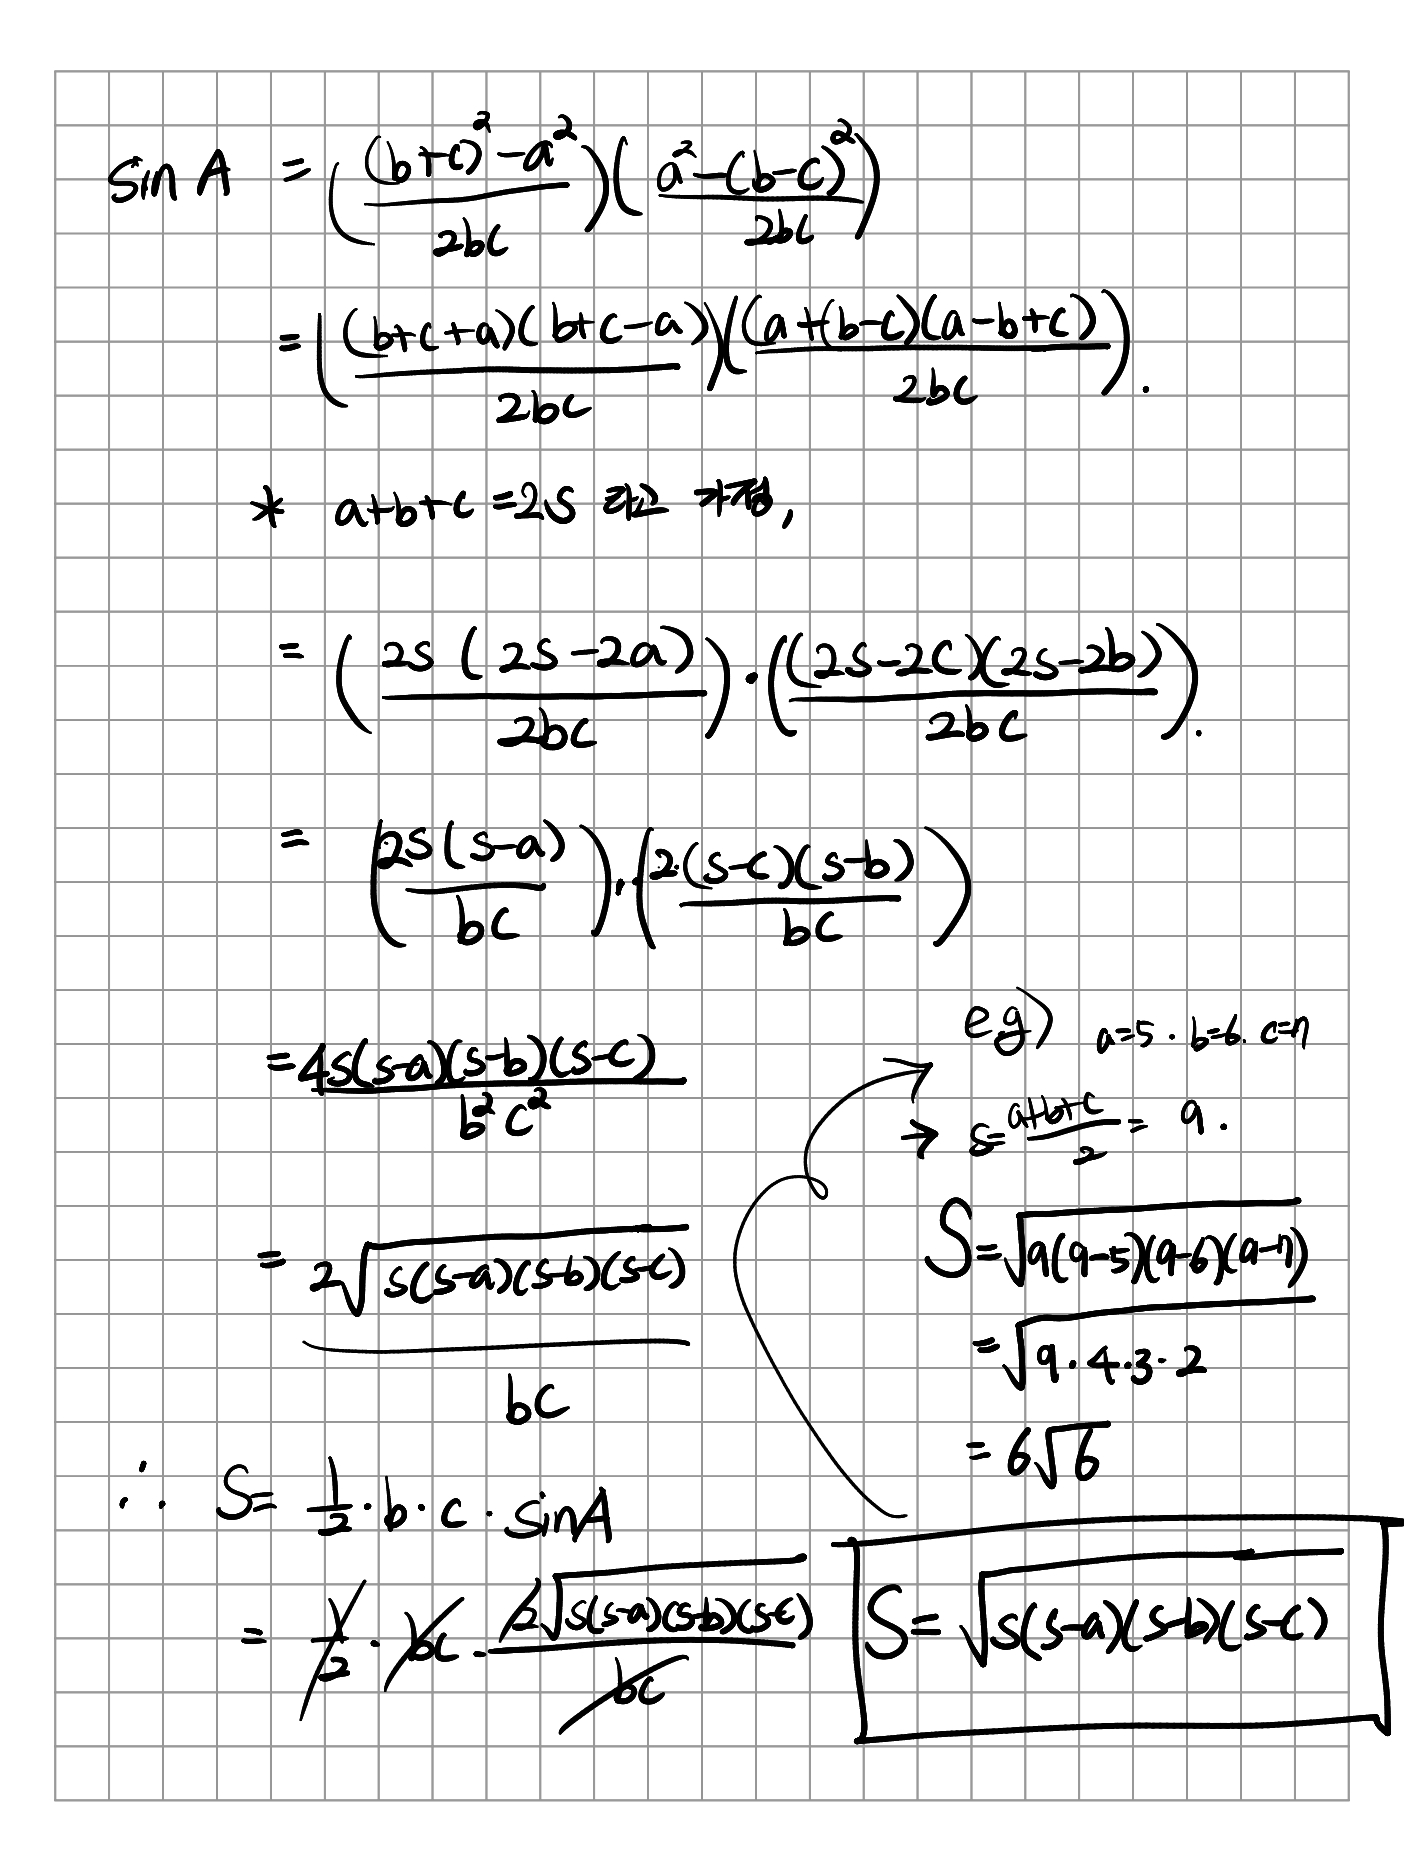 sin A = (((b+c)²-a²)/2bc)((a²-(b-c)²)/2bc)
= (((b+c+a)(b+c-a))/2bc)(((a+(b-c)(a-b+c))/2bc).
* a+b+c=2s 라고 가정,
= (2s(2s-2a)/2bc)·(((2s-2c)(2s-2b))/2bc).
= (2s(s-a)/bc)·(2·(s-c)(s-b)/bc)
= 4s(s-a)(s-b)(s-c)/b²c²
= 2√(s(s-a)(s-b)(s-c))/bc
∴ S= 1/2·b·c·sinA
= 1/2·bc·2√(s(s-a)(s-b)(s-c))/bc
e.g) a=5·b=6. c=7
→ s=(a+b+c)/2= 9.
S=√(9(9-5)(9-6)(9-7))
=√(9·4·3·2)
= 6√6
S=√(s(s-a)(s-b)(s-c))